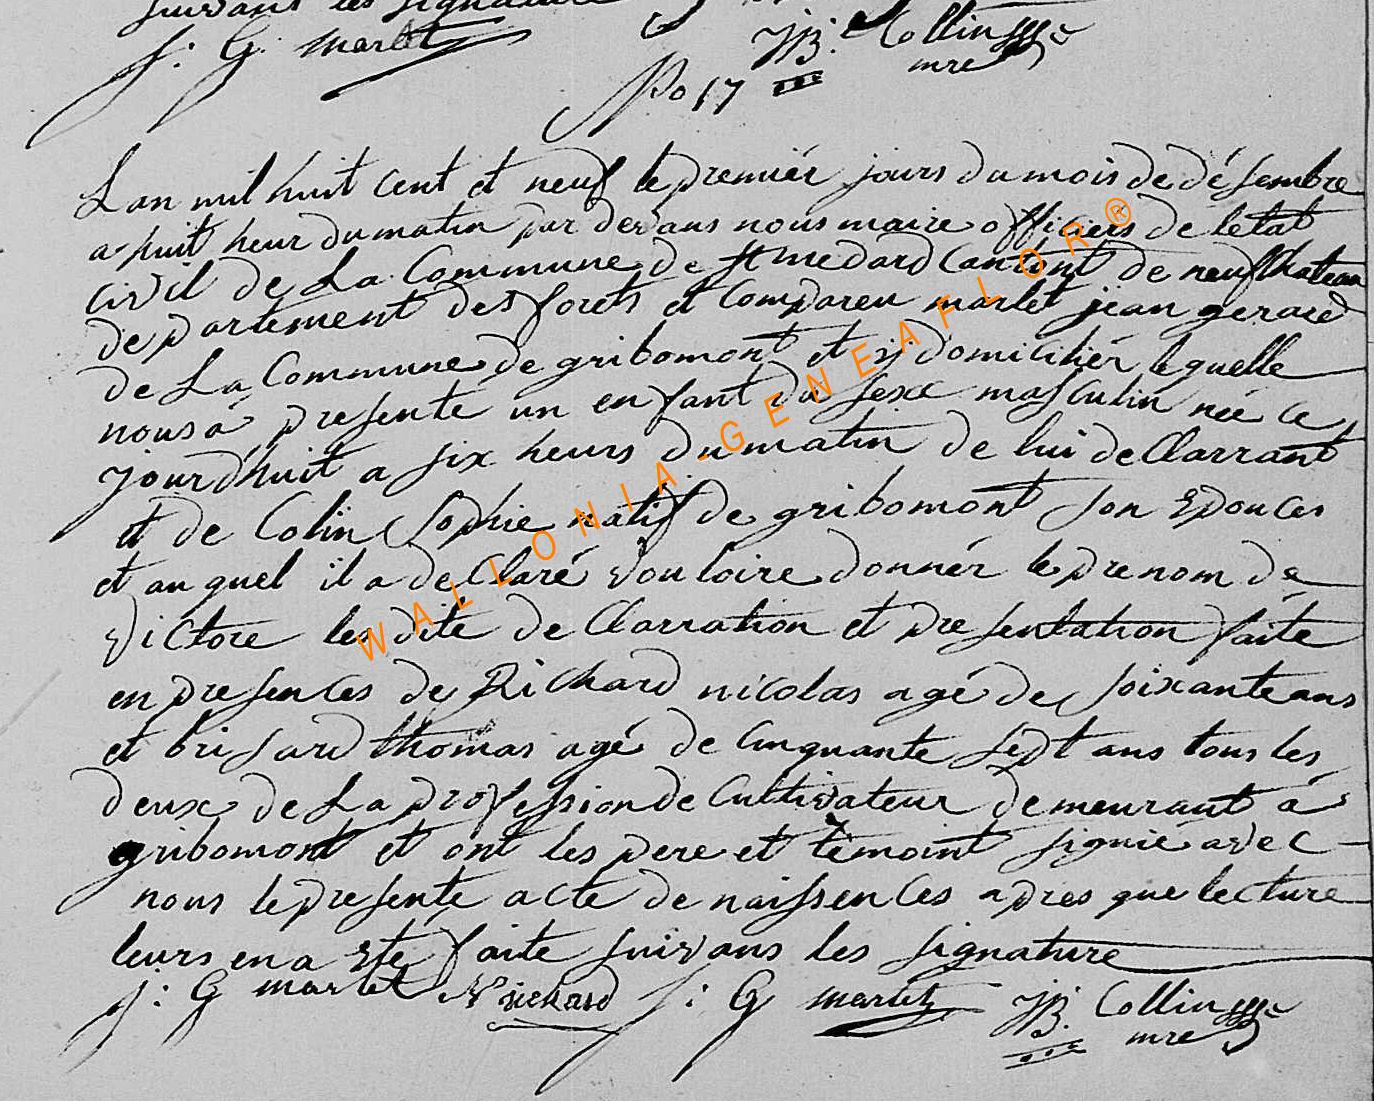 suivans les signature
J: G. marlet JB. Collin
mre
No 17
Lan mil huit cent et neuf le premiér jours du mois de désembre
a huit heur du matin par devans nous maire officiers de letat
civil de La Commune de st medard Canton de neufchateau
departement des forets et Compareu marlet jean gerard
de La Commune de gribomont et ÿ domicihér lequelle
nous á presente un enfant du sexe masculin née ce
jourd'huit a six heurs du matin de lui declarrant
et de Colin Sophie natif de gribomont son Epouces
et au quel il a declaré vouloire donnér le prenom de
victore les dite declarration et presentation faite
en presences de Richard nicolas agé de soixante ans
et brisard thomas agé de cinquante sept ans tous les
deux de La profession de Cultivateur demeurant á
gribomont et ont les pere et temoint signié avec
nous le present acte de naissences apres que lecture
leurs en a Eté faite suivans les signature
J: G marlet N richard J: G marlet JB. Collin
mre
WALLONIA-GENEAFLOR®